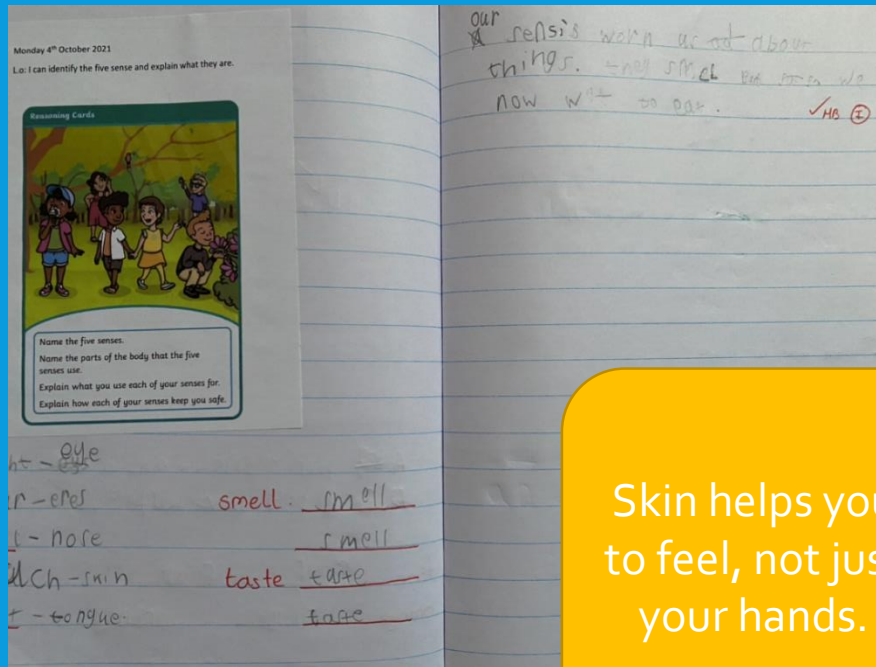 Monday 4th October 2021
L.o: I can identify the five sense and explain what they are.
Reasoning Cards
Name the five senses.
Name the parts of the body that the five
senses use.
Explain what you use each of your senses for.
Explain how each of your senses keep you safe.
ht - eye
r - eres
- nose
uch - skin
t - tongue.
smell. smell
smell
taste taste
taste
our
sensi's worn us about
things. smell we
now to eat.
✓HB I
Skin helps you
to feel, not jus
your hands.